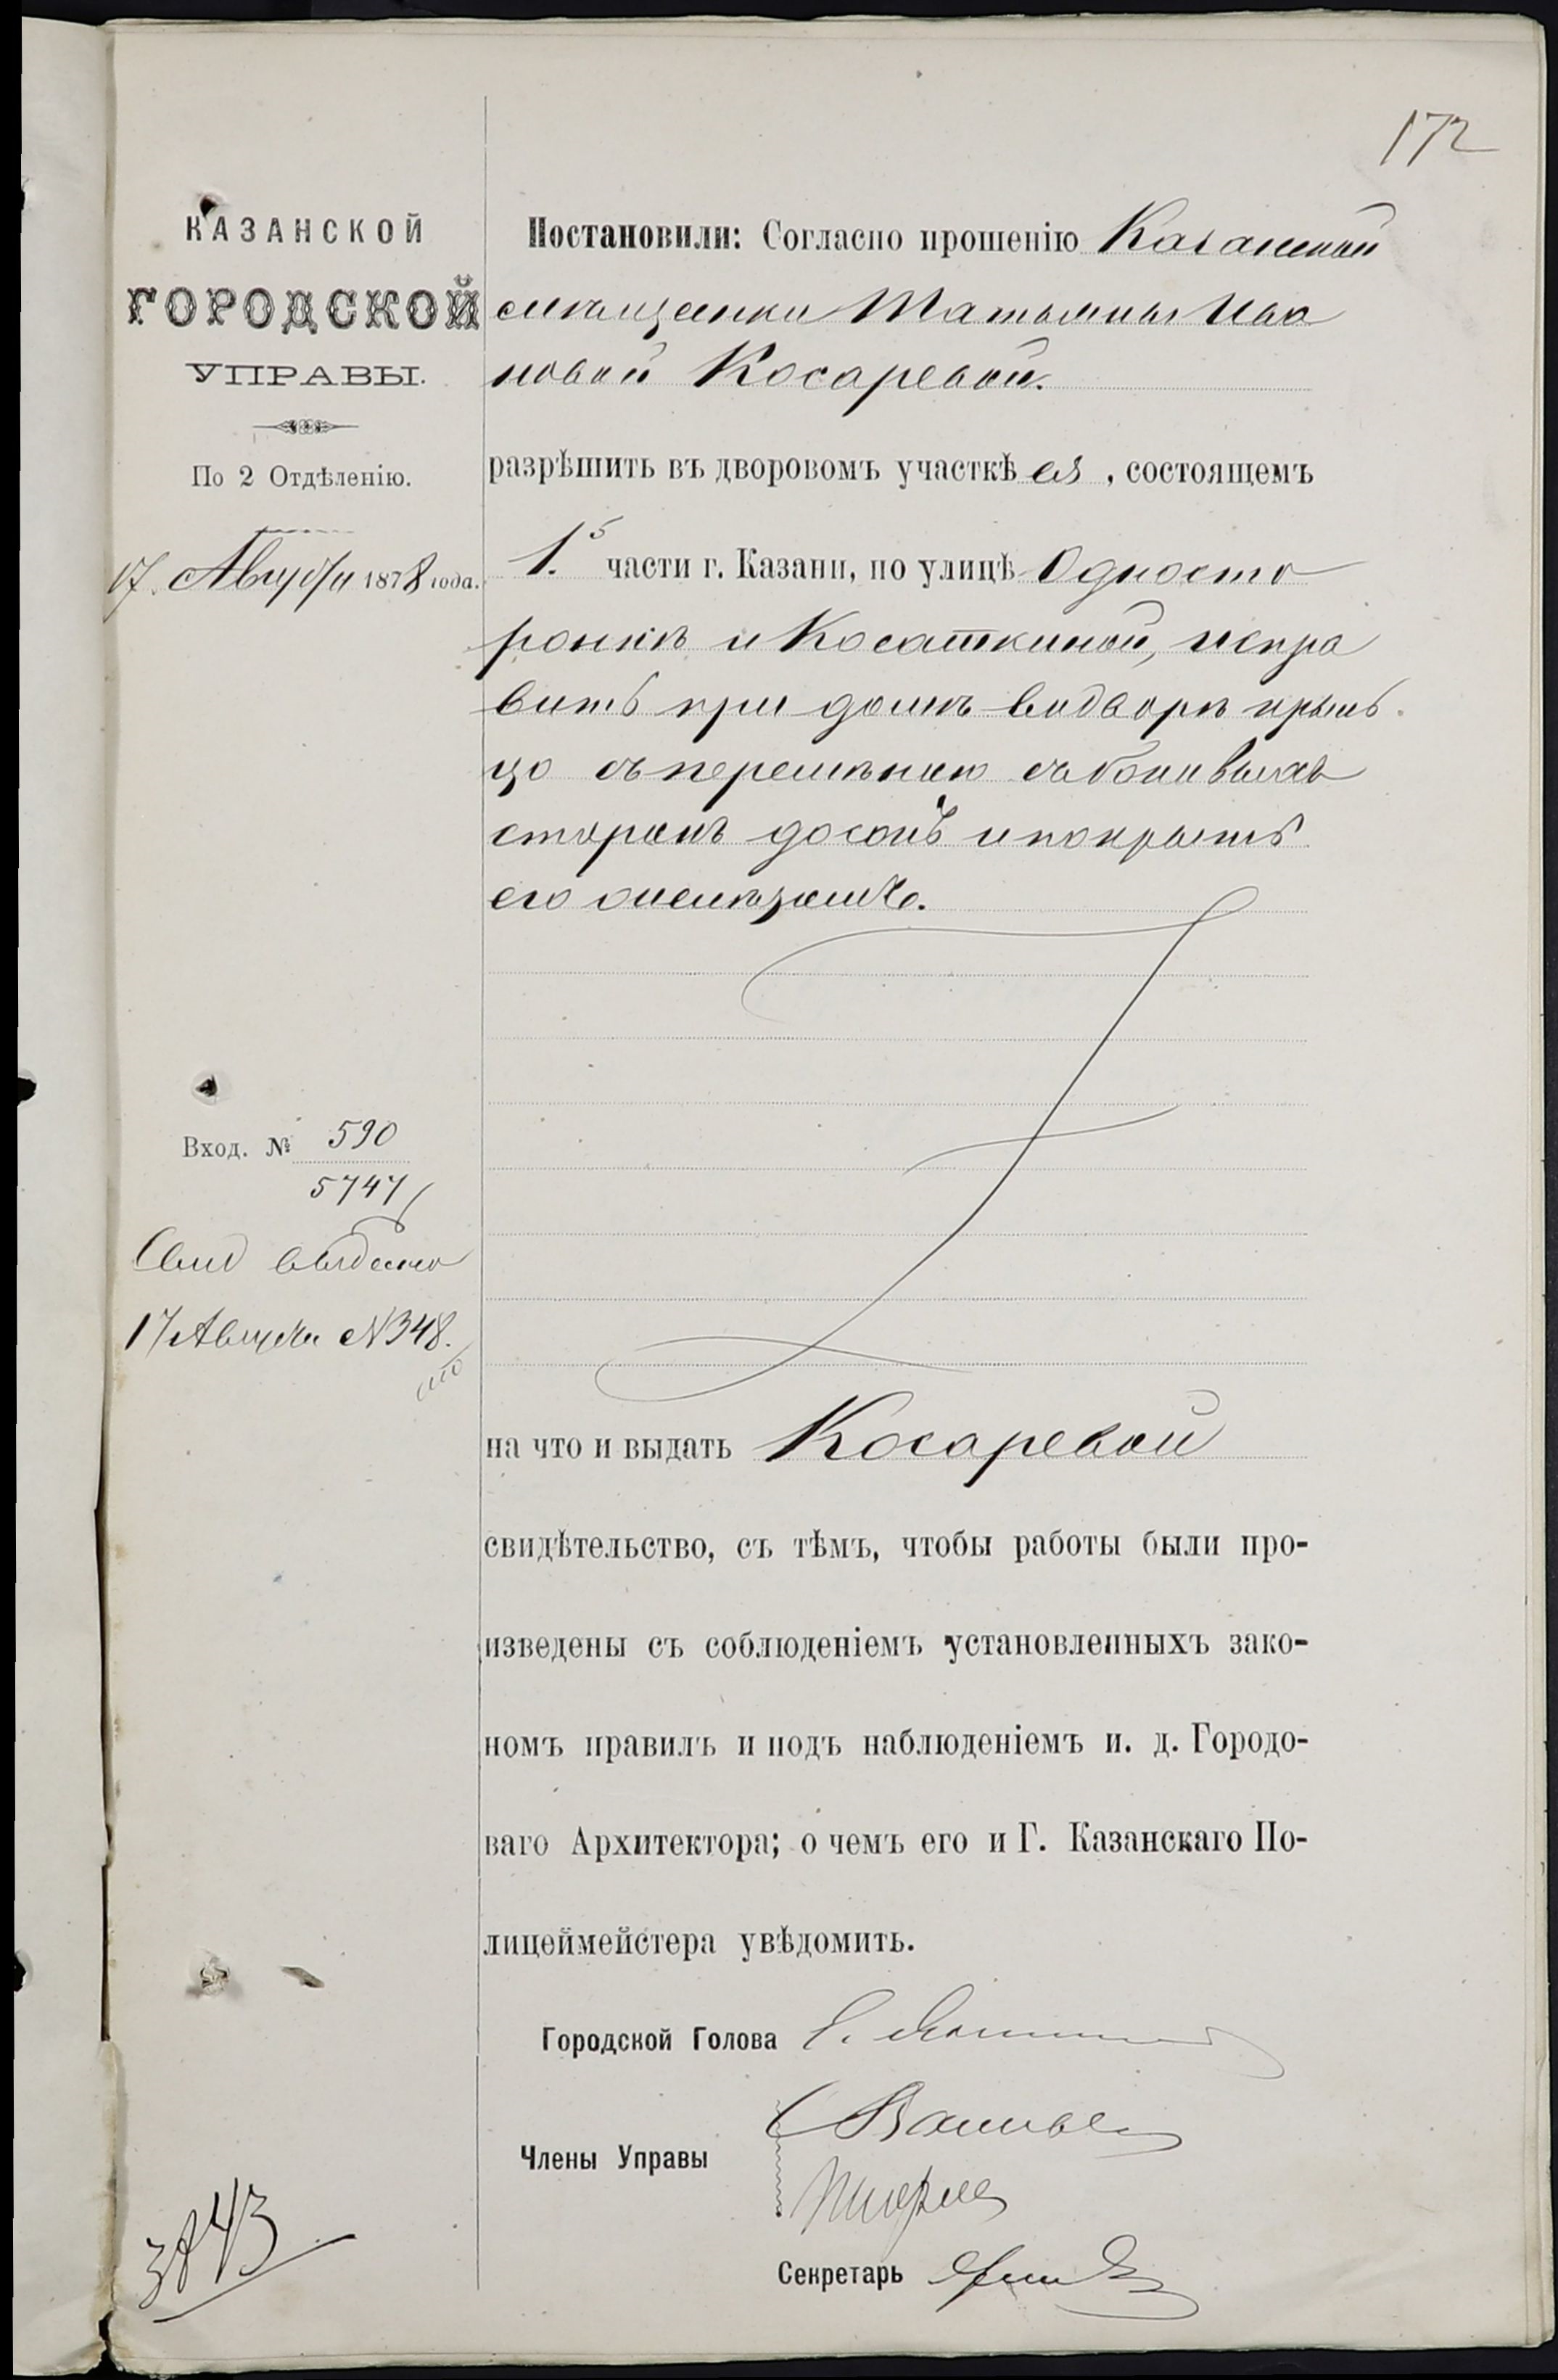 172
КАЗАНСКОЙ
ГОРОДСКОЙ
УПРАВЫ.
По 2 Отдѣленію.
17 Августа 1878 года.
Постановили: Согласно прошенію Казанской
мѣщанки Татьяны Ива
новой Косаревой.
разрѣшить въ дворовомъ участкѣ ея, состоящемъ
1.й части г. Казани, по улицѣ Односто
ронкѣ и Косаткиной, испра
вить при домѣ во дворѣ крыль
цо съ перемѣною съ боковыхъ
сторонъ досокъ и покрыть
его желѣзомъ.
Вход. № 590
5747
Свид выдано
17 Августа N 348.
на что и выдать Косаревой
свидѣтельство, съ тѣмъ, чтобы работы были про-
изведены съ соблюденіемъ установленныхъ зако-
номъ правилъ и подъ наблюденіемъ и. д. Городо-
ваго Архитектора; о чемъ его и Г. Казанскаго По-
лицеймейстера увѣдомить.
Городской Голова
Члены Управы
Секретарь